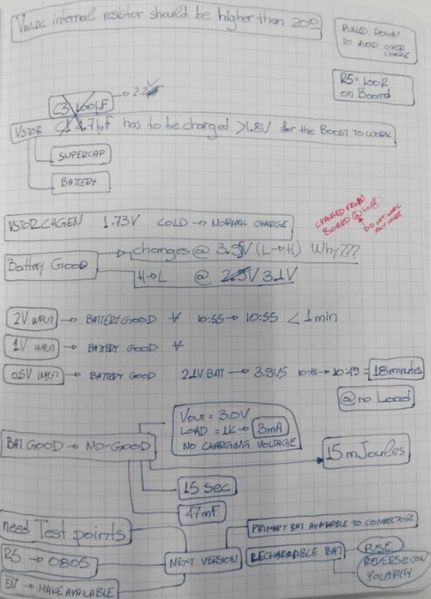 internal resistor should be higher than 200
PULLED DOWN
TO AVOID OVER
CHARGE
R5=100R
on Board
C3 100µF → 2.2
VSTOR C1 4.7µF has to be charged >1.8V for the Boost to work
SUPERCAP
BATTERY
VSTOR_CHGEN 1.73V COLD → NORMAL CHARGE
CHANGED FROM
BOARD
DO NOT
ANY MORE
Battery Good → changes @ 3.5V (L→H) Why???
H→L @ 2.5V 3.1V
2V INPUT → BATTERY GOOD 10:55 → 10:55 < 1 min
1V INPUT → BATTERY GOOD
0.5V INPUT → BATTERY GOOD 2.1V BAT → 3.9V5 10:31 → 10:49 = 18 minutes
@ no Load
Vout = 3.0V
LOAD = 1K → 3mA
NO CHARGING VOLTAGE
BAT GOOD → NO-GOOD
15 mJoules
15 sec
47mF
need Test points
PRIMARY BAT AVAILABLE TO CONNECTOR
R5 → 0805
NEXT VERSION
RECHARGEABLE BAT
FUSE
REVERSE CON
POLARITY
EN → MAKE AVAILABLE